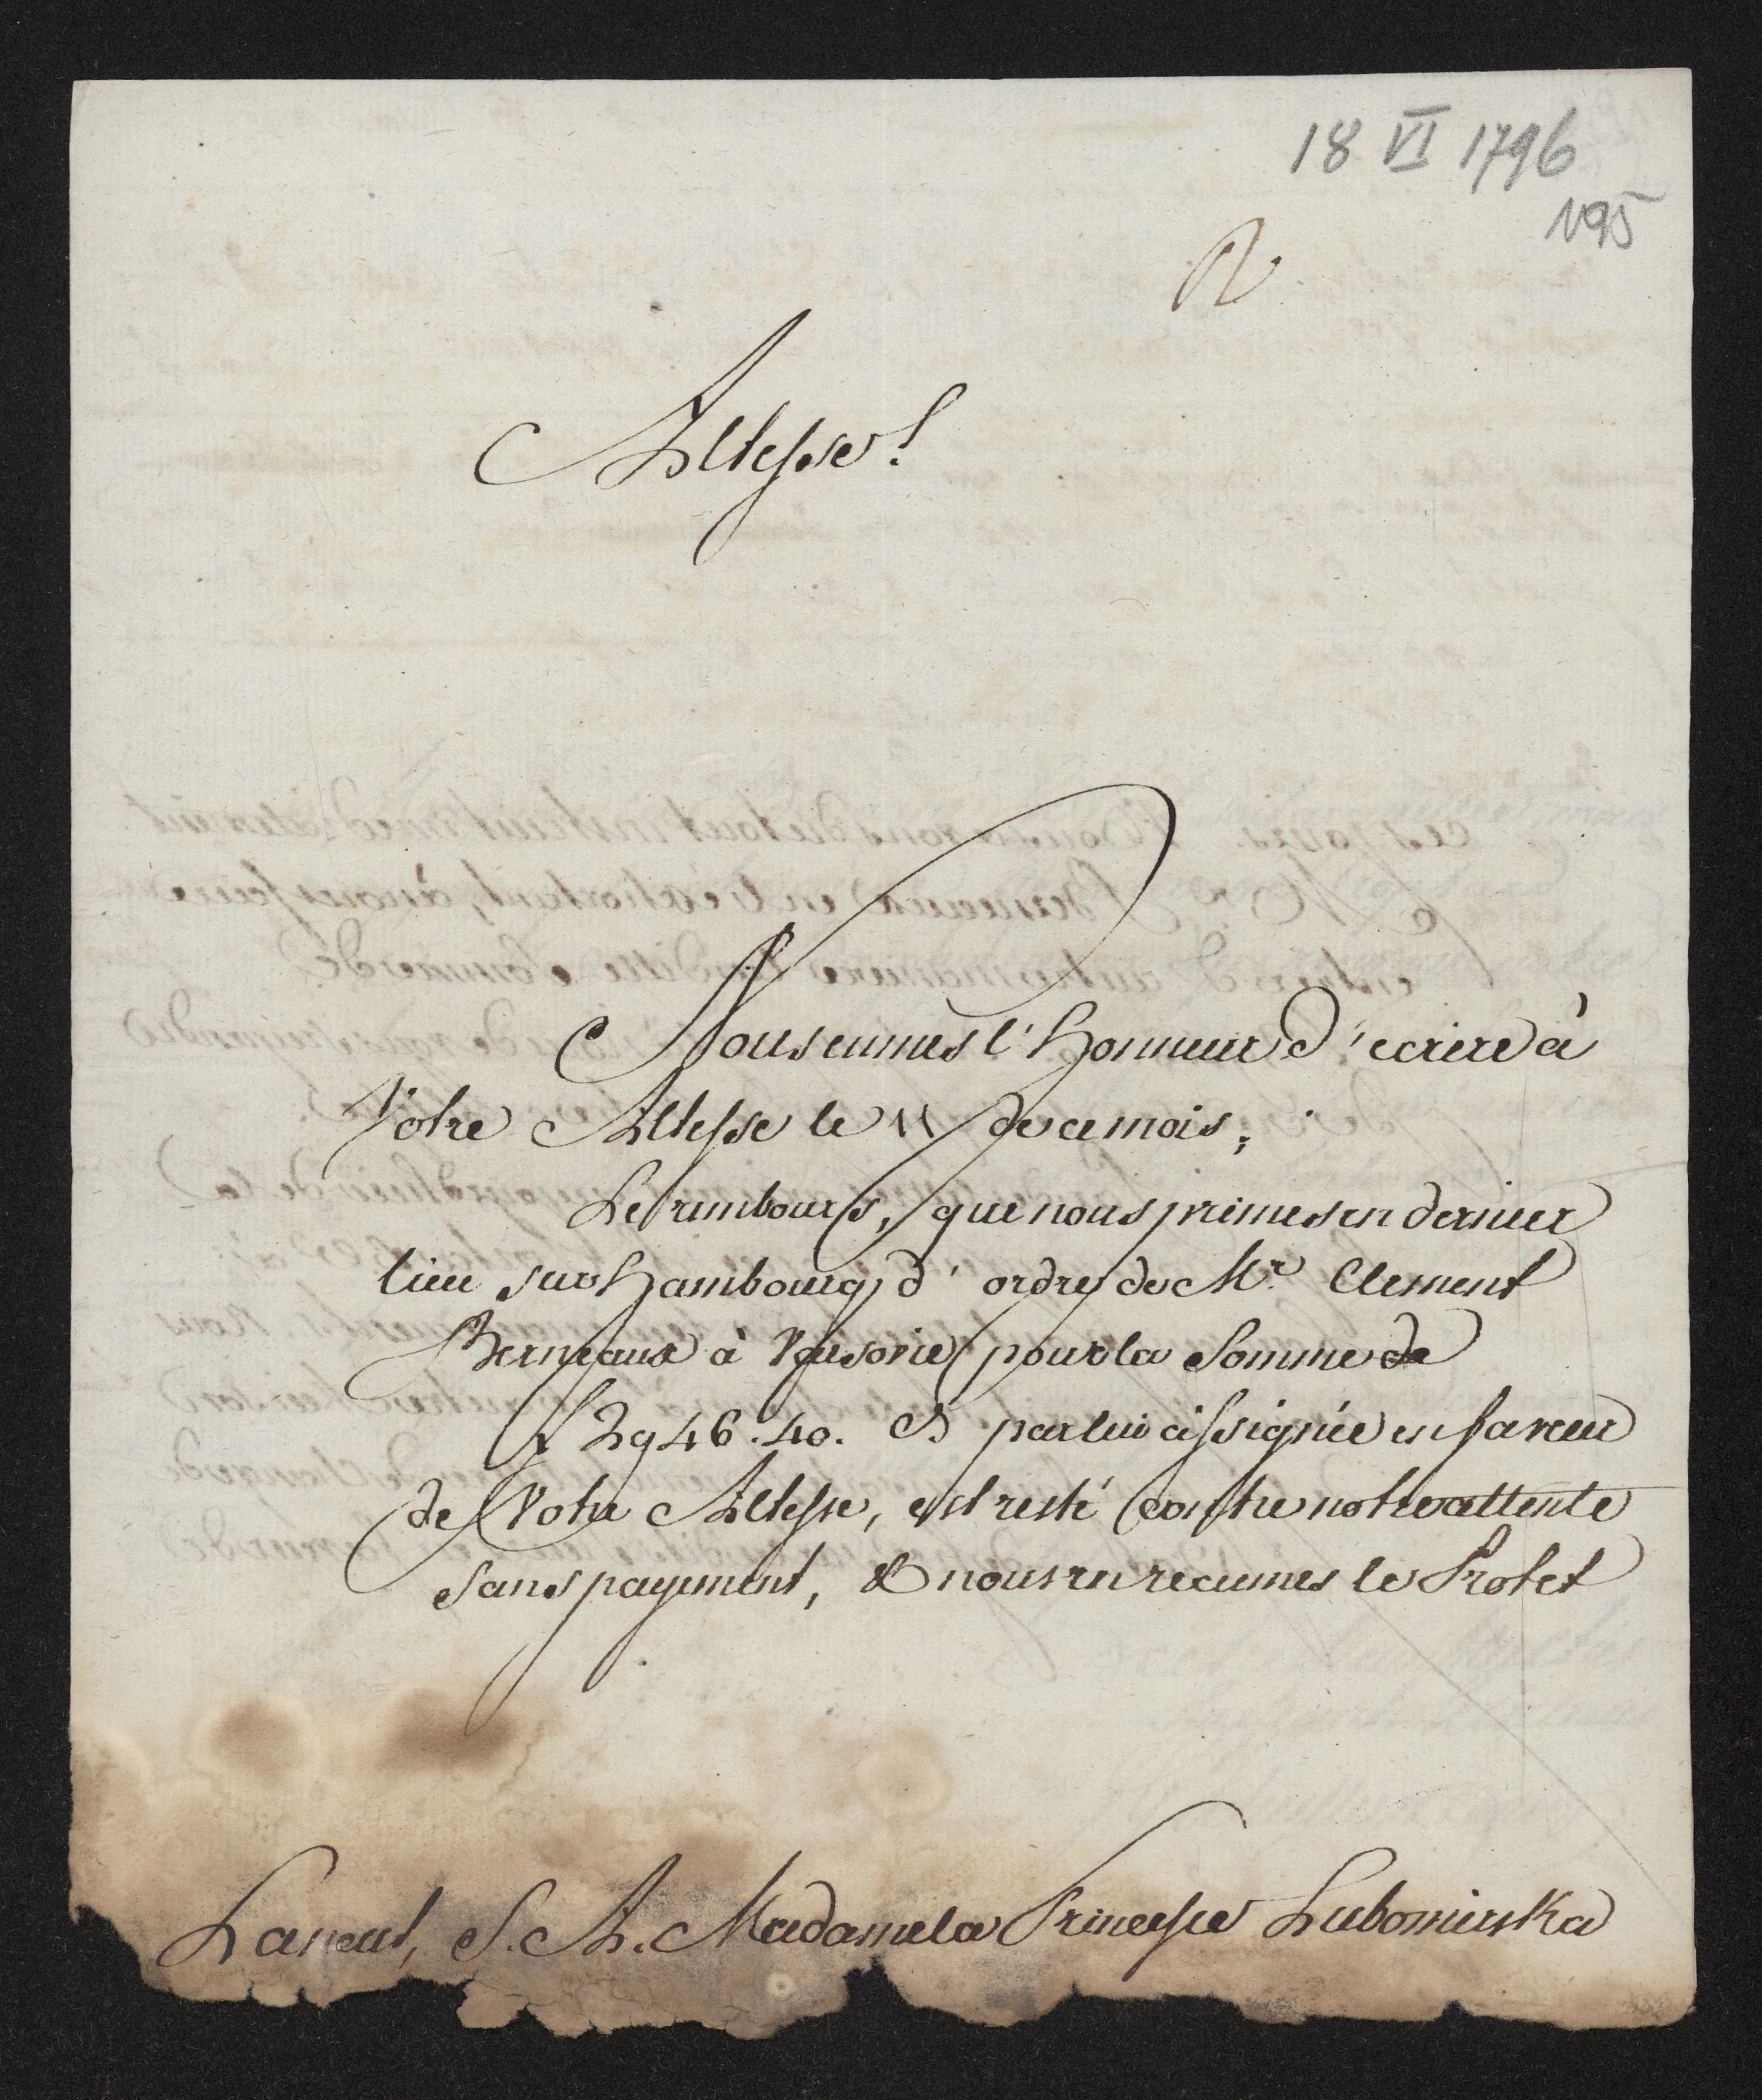 18 VI 1796
1195
Altesse!
Nous eumes l'honneur d'ecrire à
Votre Altesse le 11 de ce mois;
Le rembours, que nous primes en dernier
lieu sur Hambourg d'ordre de Mr. Clement
Berneaux à Varsovie pour la Somme de
f 2946.40. & par lui assignée en faveur
de Votre Altesse, est resté contre notre attente
sans payement, & nous en recumes le Protet
Lancut, S. A. Madame la Princesse Lubomirska